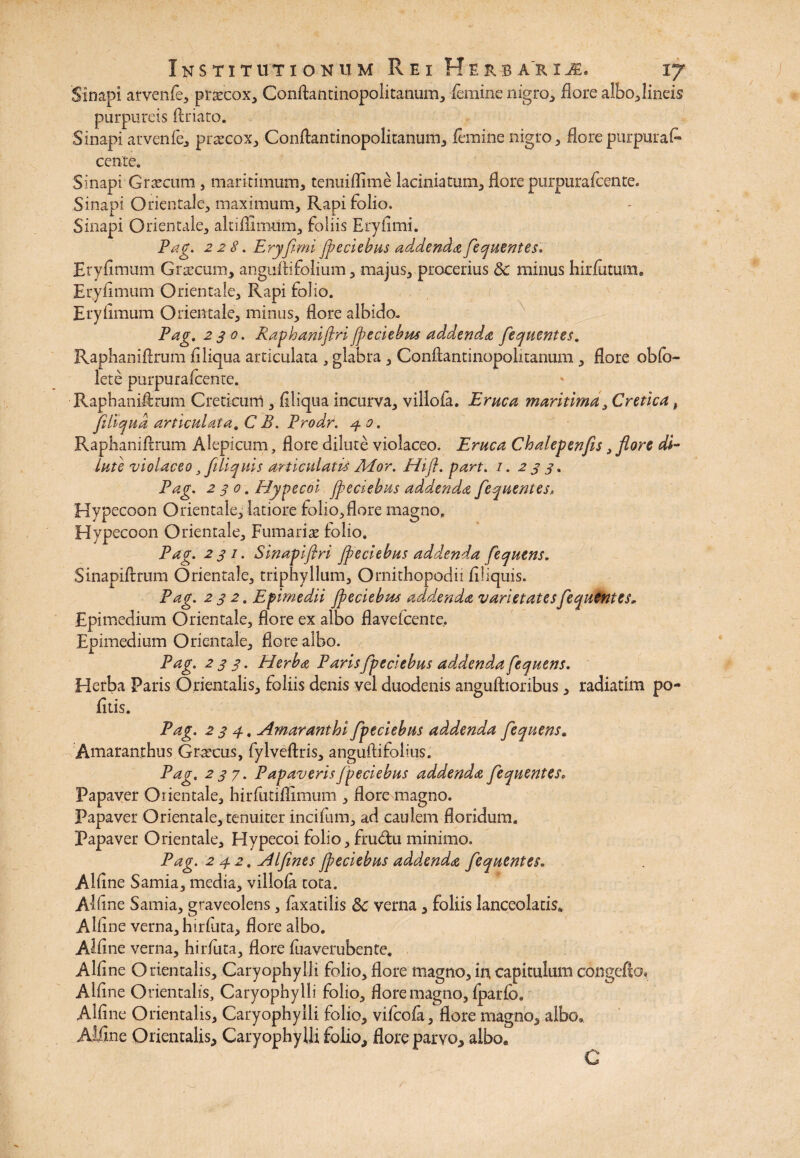 INSTITUTIONUM REI HERBARIÆ. 17
Sinapi arvenſe, præcox, Conſtantinopolitanum, ſemine nigro, flore albo, lineis
purpureis ſtriato.
Sinapi arvenſe, præcox, Conſtantinopolitanum, ſemine nigro, flore purpuraſ-
cente.
Sinapi Græcum, maritimum, tenuiſſimè laciniatum, flore purpuraſcente.
Sinapi Orientale, maximum, Rapi folio.
Sinapi Orientale, altiſſimum, foliis Eryſimi.
Pag. 228. Eryſimi ſpeciebus addendæ ſequentes.
Eryſimum Græcum, anguſtifolium, majus, procerius & minus hirſutum.
Eryſimum Orientale, Rapi folio.
Eryſimum Orientale, minus, flore albido.
Pag. 230. Raphaniſtri ſpeciebus addendæ ſequentes.
Raphaniſtrum ſiliqua articulata, glabra, Conſtantinopolitanum, flore obſo-
letè purpuraſcente.
Raphaniſtrum Creticum, ſiliqua incurva, villoſa. Eruca maritima, Cretica,
ſiliquâ articulata. C B. Prodr. 40.
Raphaniſtrum Alepicum, flore dilutè violaceo. Eruca Chalepenſis, flore di-
lutè violaceo, ſiliquis articulatis Mor. Hiſt. part. 1. 233.
Pag. 230. Hypecoi ſpeciebus addendæ ſequentes.
Hypecoon Orientale, latiore folio, flore magno.
Hypecoon Orientale, Fumariæ folio.
Pag. 231. Sinapiſtri ſpeciebus addenda ſequens.
Sinapiſtrum Orientale, triphyllum, Ornithopodii ſiliquis.
Pag. 232. Epimedii ſpeciebus addendæ varietates ſequentes.
Epimedium Orientale, flore ex albo flaveſcente.
Epimedium Orientale, flore albo.
Pag. 233. Herbæ Paris ſpeciebus addenda ſequens.
Herba Paris Orientalis, foliis denis vel duodenis anguſtioribus, radiatim po-
ſitis.
Pag. 234. Amaranthi ſpeciebus addenda ſequens.
Amaranthus Græcus, ſylveſtris, anguſtifolius.
Pag. 237. Papaveris ſpeciebus addendæ ſequentes.
Papaver Orientale, hirſutiſſimum, flore magno.
Papaver Orientale, tenuiter inciſum, ad caulem floridum.
Papaver Orientale, Hypecoi folio, fructu minimo.
Pag. 242. Alſines ſpeciebus addendæ ſequentes.
Alſine Samia, media, villoſa tota.
Alſine Samia, graveolens, ſaxatilis & verna, foliis lanceolatis.
Alſine verna, hirſuta, flore albo.
Alſine verna, hirſuta, flore ſuaverubente.
Alſine Orientalis, Caryophylli folio, flore magno, in capitulum congeſto.
Alſine Orientalis, Caryophylli folio, flore magno, ſparſo.
Alſine Orientalis, Caryophylli folio, viſcoſa, flore magno, albo.
Alſine Orientalis, Caryophylli folio, flore parvo, albo.
C